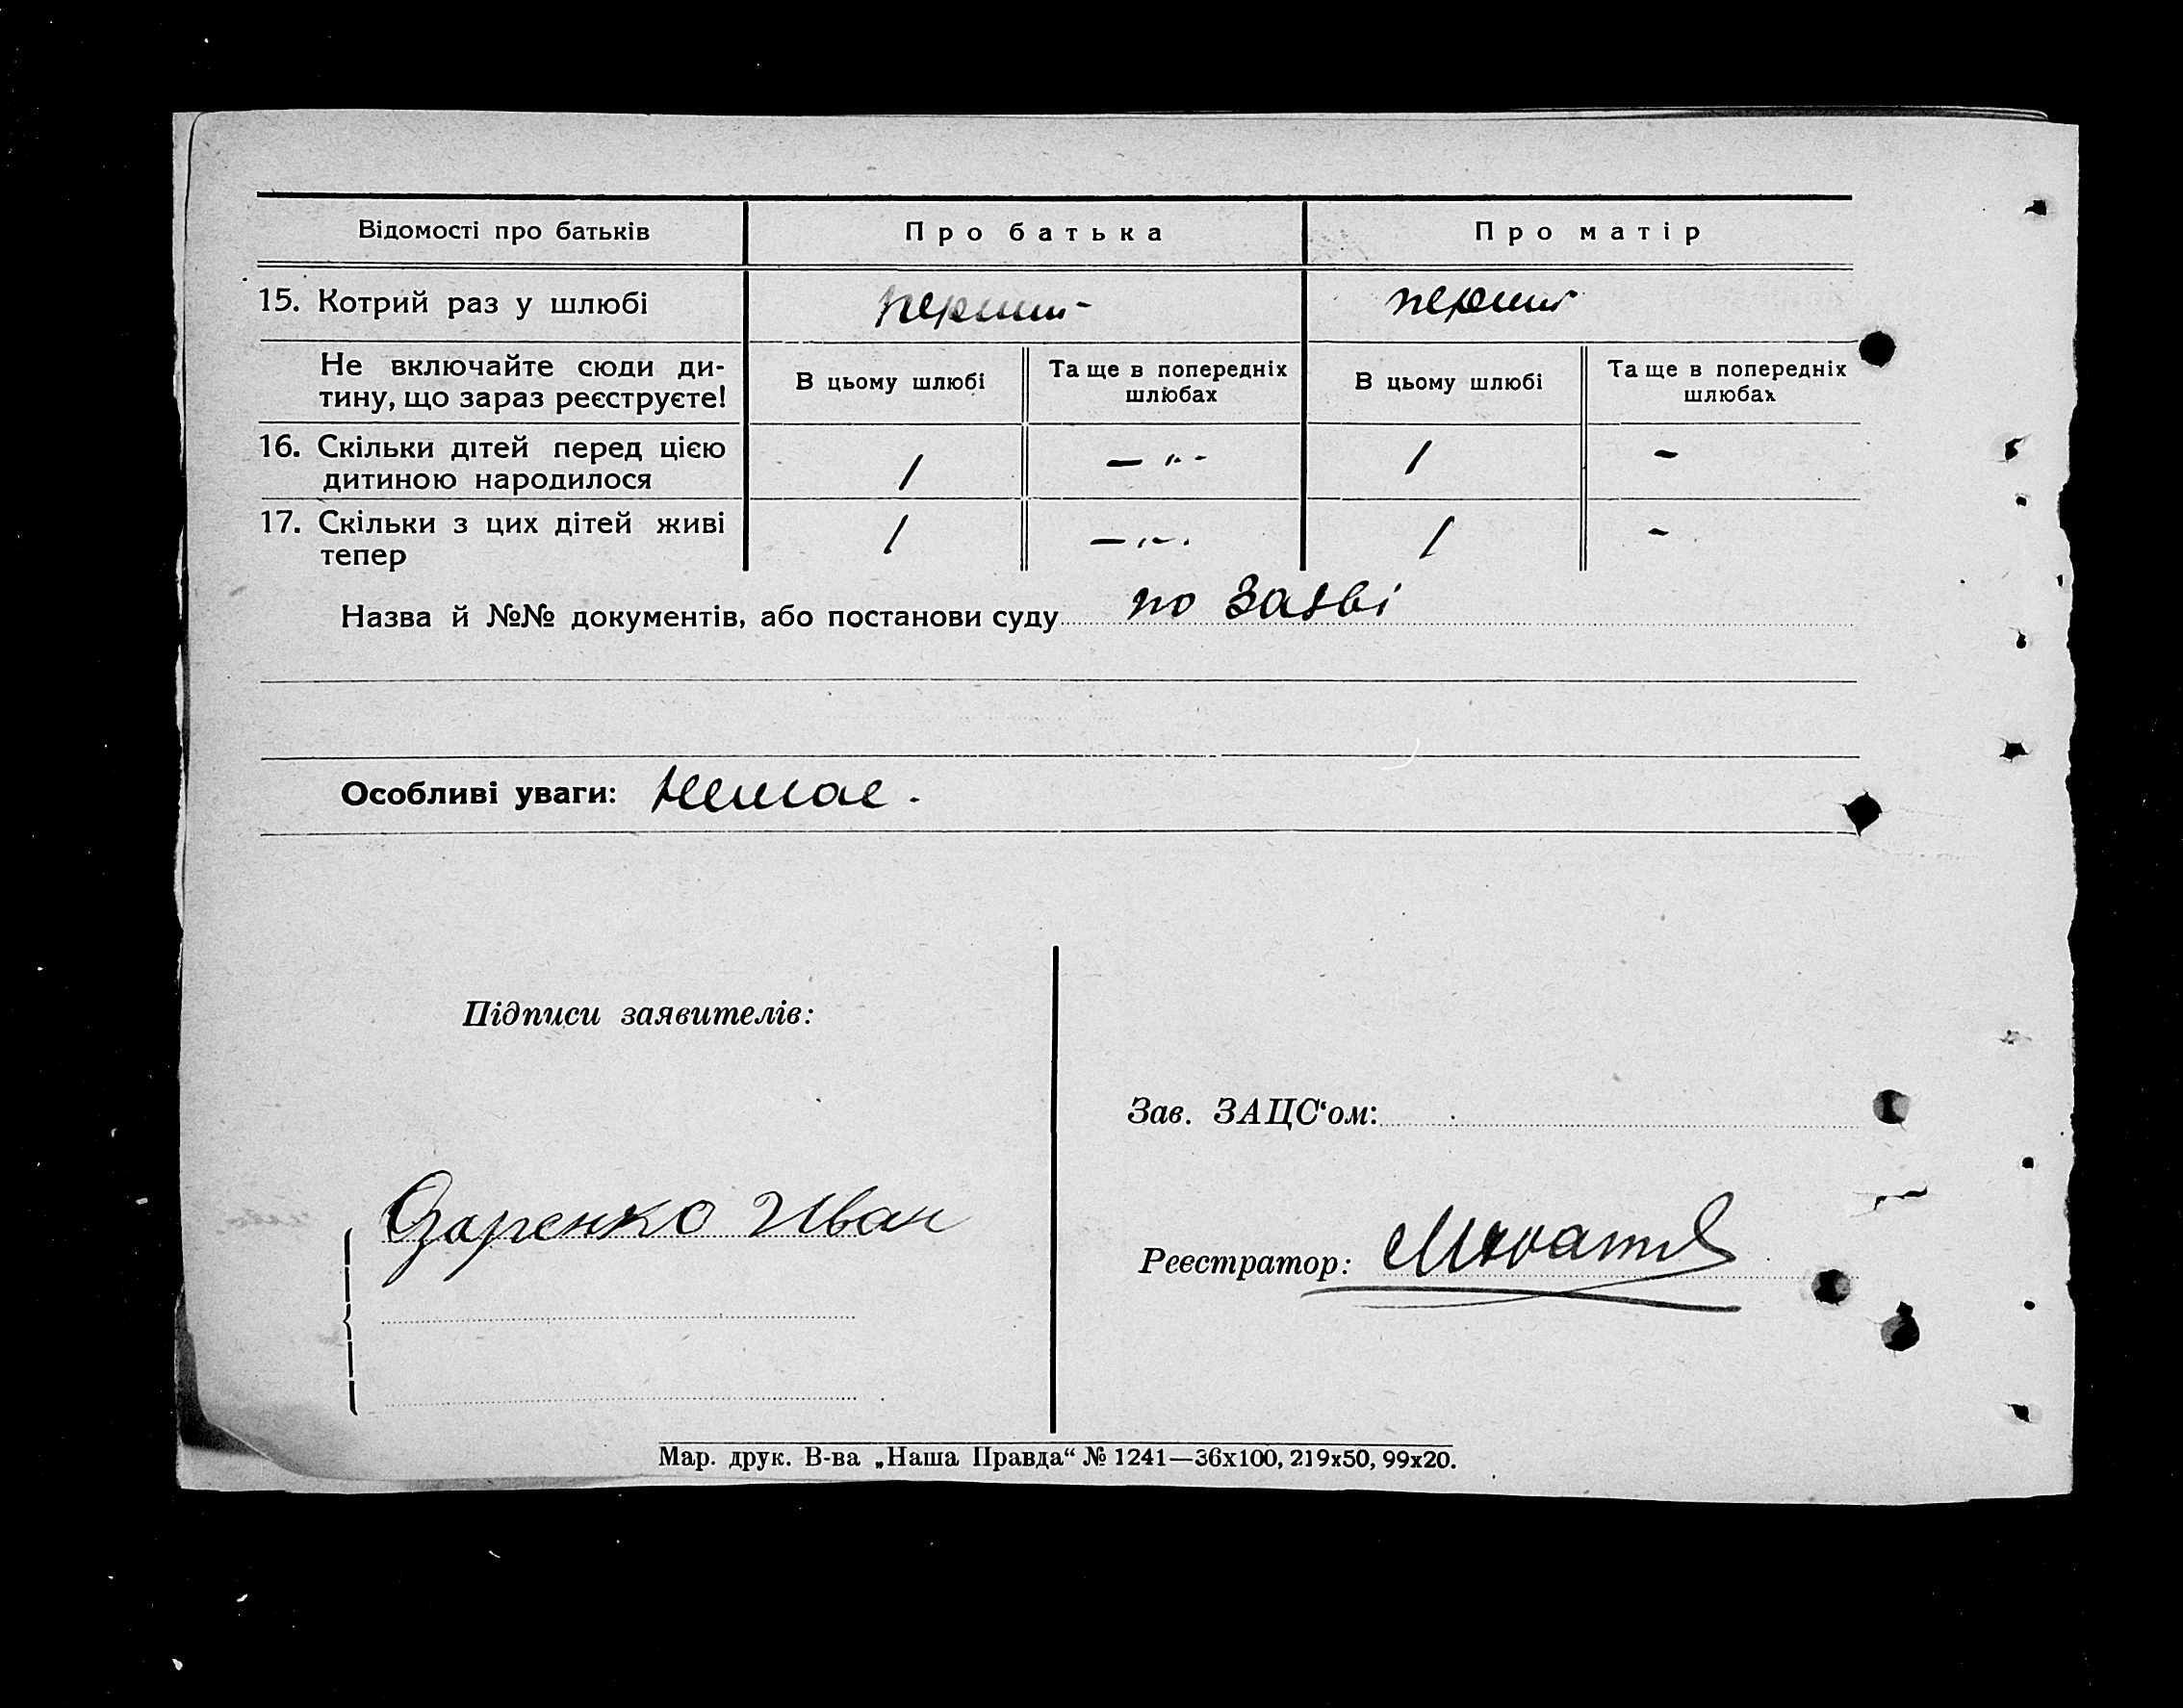 Відомості про батьків Про батька Про матір
15. Котрий раз у шлюбі перший перший
Не включайте сюди ди-
тину, що зараз реєструєте!
В цьому шлюбі Та ще в попередніх шлюбах В цьому шлюбі Та ще в попередніх шлюбах
16. Скільки дітей перед цією
дитиною народилося 1 — „ - 1 -
17. Скільки з цих дітей живі
тепер 1 — „ - 1 -
Назва й №№ документів, або постанови суду по заяві
Особливі уваги: немає.
Підписи заявителів:
Зав. ЗАЦС‘ом:
Иван
Реєстратор:
Мар. друк. В-ва „Наша Правда“ № 1241—36х100, 219х50, 99х20.